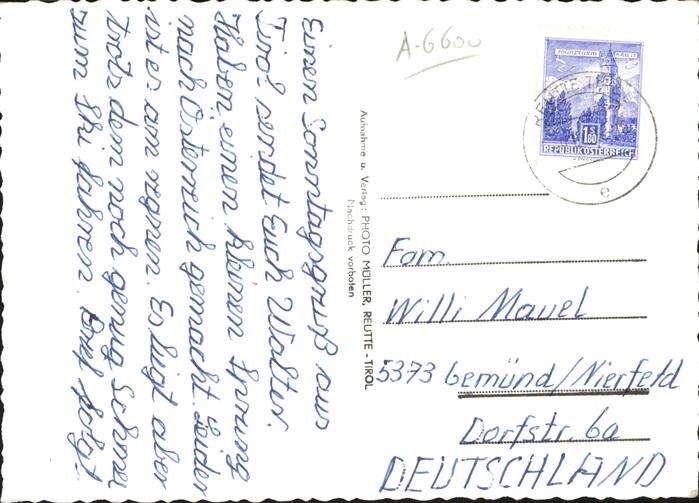 Einen Sonntagsgruß aus
Tirol sendet Euch Walter.
Haben einen kleinen Sprung
nach Österreich gemacht. Leider
ist es am regnen. Es liegt aber
trotz dem noch genug Schnee
zum Ski fahren. Brief folgt.
A-6600
Aufnahme u. Verlag: PHOTO MÜLLER, REUTTE - TIROL
Nachdruck verboten
REUTTE
MÜNZTURM HALL
1.50 S
REPUBLIK ÖSTERREICH
e
Fam.
Willi Mauel
5373 Gemünd/Nierfeld
Dorfstr. 6a
DEUTSCHLAND